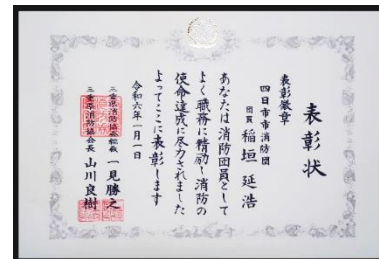 表彰状
表彰徽章
四日市市消防団
団員 稲垣 延浩
あなたは消防団員として
よく職務に精励し消防の
使命達成に尽力されました
よってここに表彰します
令和六年一月一日
三重県消防協会総裁 一見勝之
三重県消防協会長 山川良樹